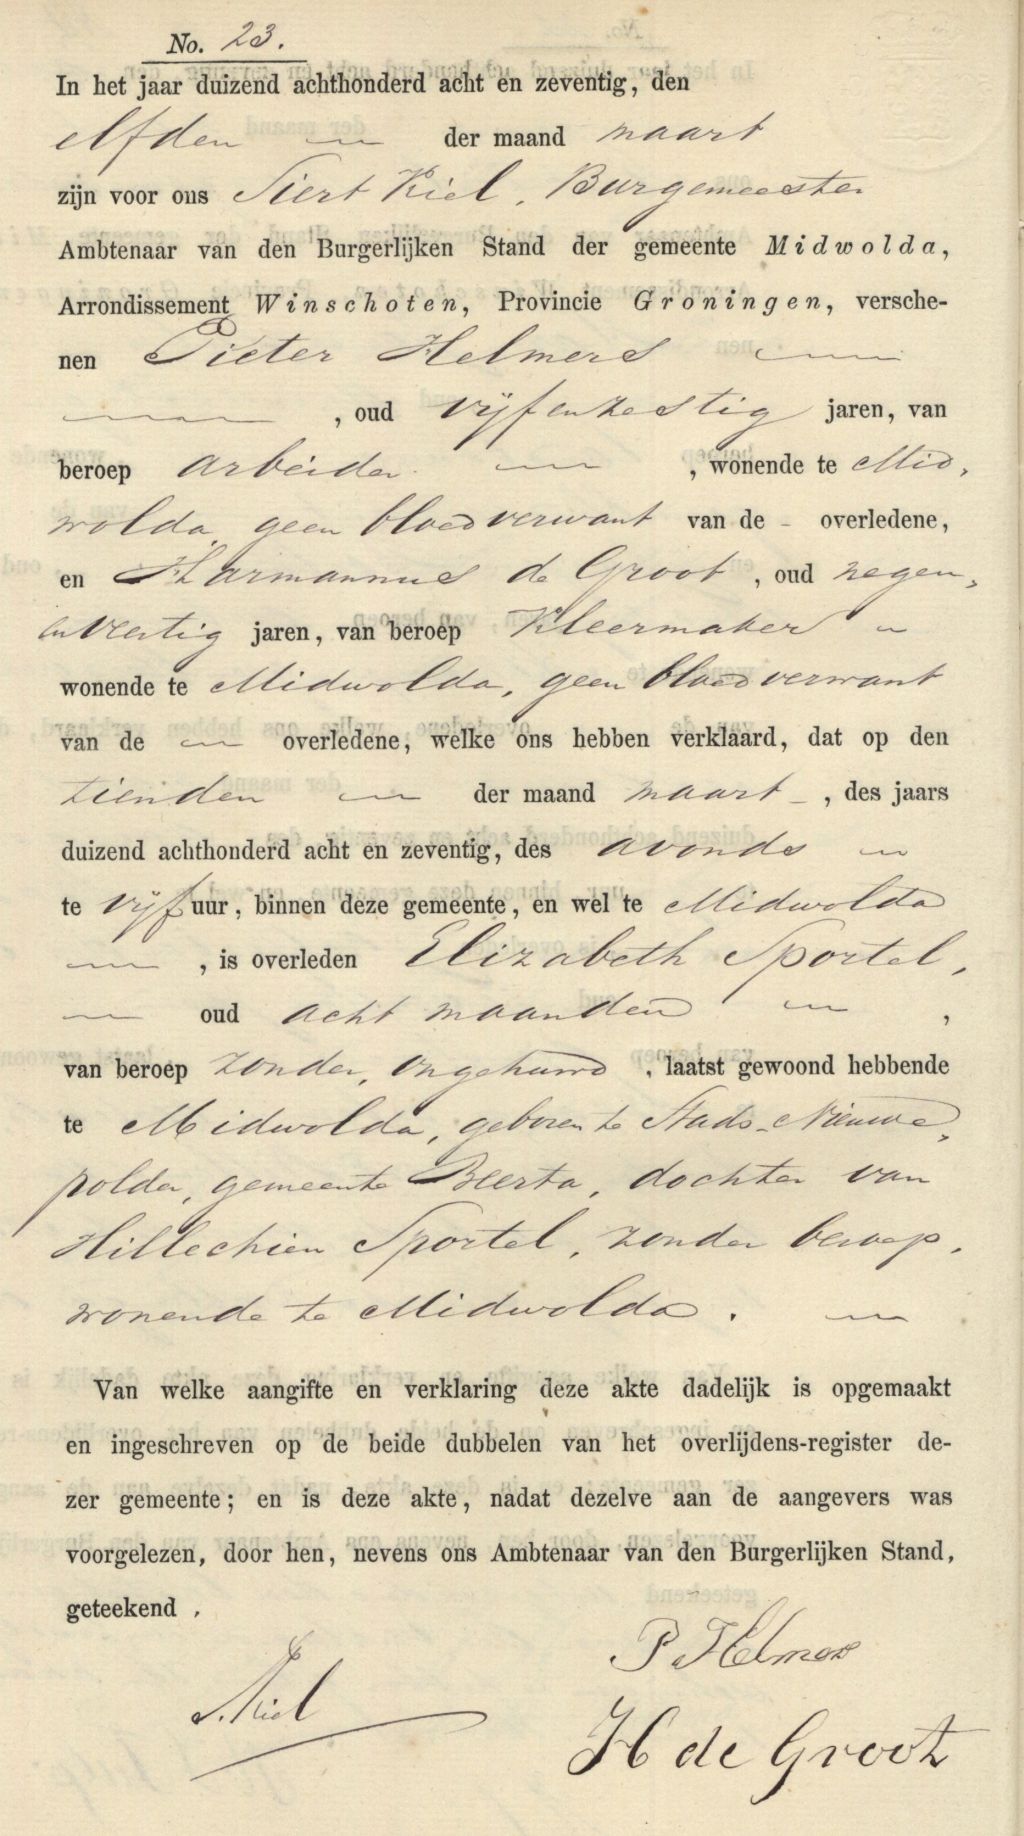 No. 23.
In het jaar duizend achthonderd acht en zeventig, den
elfden der maand maart
zijn voor ons Siert Kiel, Burgemeester
Ambtenaar van den Burgerlijken Stand der gemeente Midwolda,
Arrondissement Winschoten, Provincie Groningen, versche-
nen Pieter Helmers
, oud vijfenzestig jaren, van
beroep arbeider , wonende te Mid-
wolda, geen bloedverwant van de - overledene,
en Harmannus de Groot, oud negen-
enveertig jaren, van beroep Kleermaker
wonende te Midwolda, geen bloedverwant
van de overledene, welke ons hebben verklaard, dat op den
tienden der maand maart , des jaars
duizend achthonderd acht en zeventig, des avonds
te vijf uur, binnen deze gemeente, en wel te Midwolda
, is overleden Elizabeth Sportel,
oud acht maanden ,
van beroep zonder, ongehuwd, laatst gewoond hebbende
te Midwolda, geboren te Stads-Nieuwe-
polder, gemeente Beerta, dochter van
Hillechien Sportel, zonder beroep,
wonende te Midwolda.
Van welke aangifte en verklaring deze akte dadelijk is opgemaakt
en ingeschreven op de beide dubbelen van het overlijdens-register de-
zer gemeente; en is deze akte, nadat dezelve aan de aangevers was
voorgelezen, door hen, nevens ons Ambtenaar van den Burgerlijken Stand,
geteekend.
P Helmers
S. Kiel
H de Groot